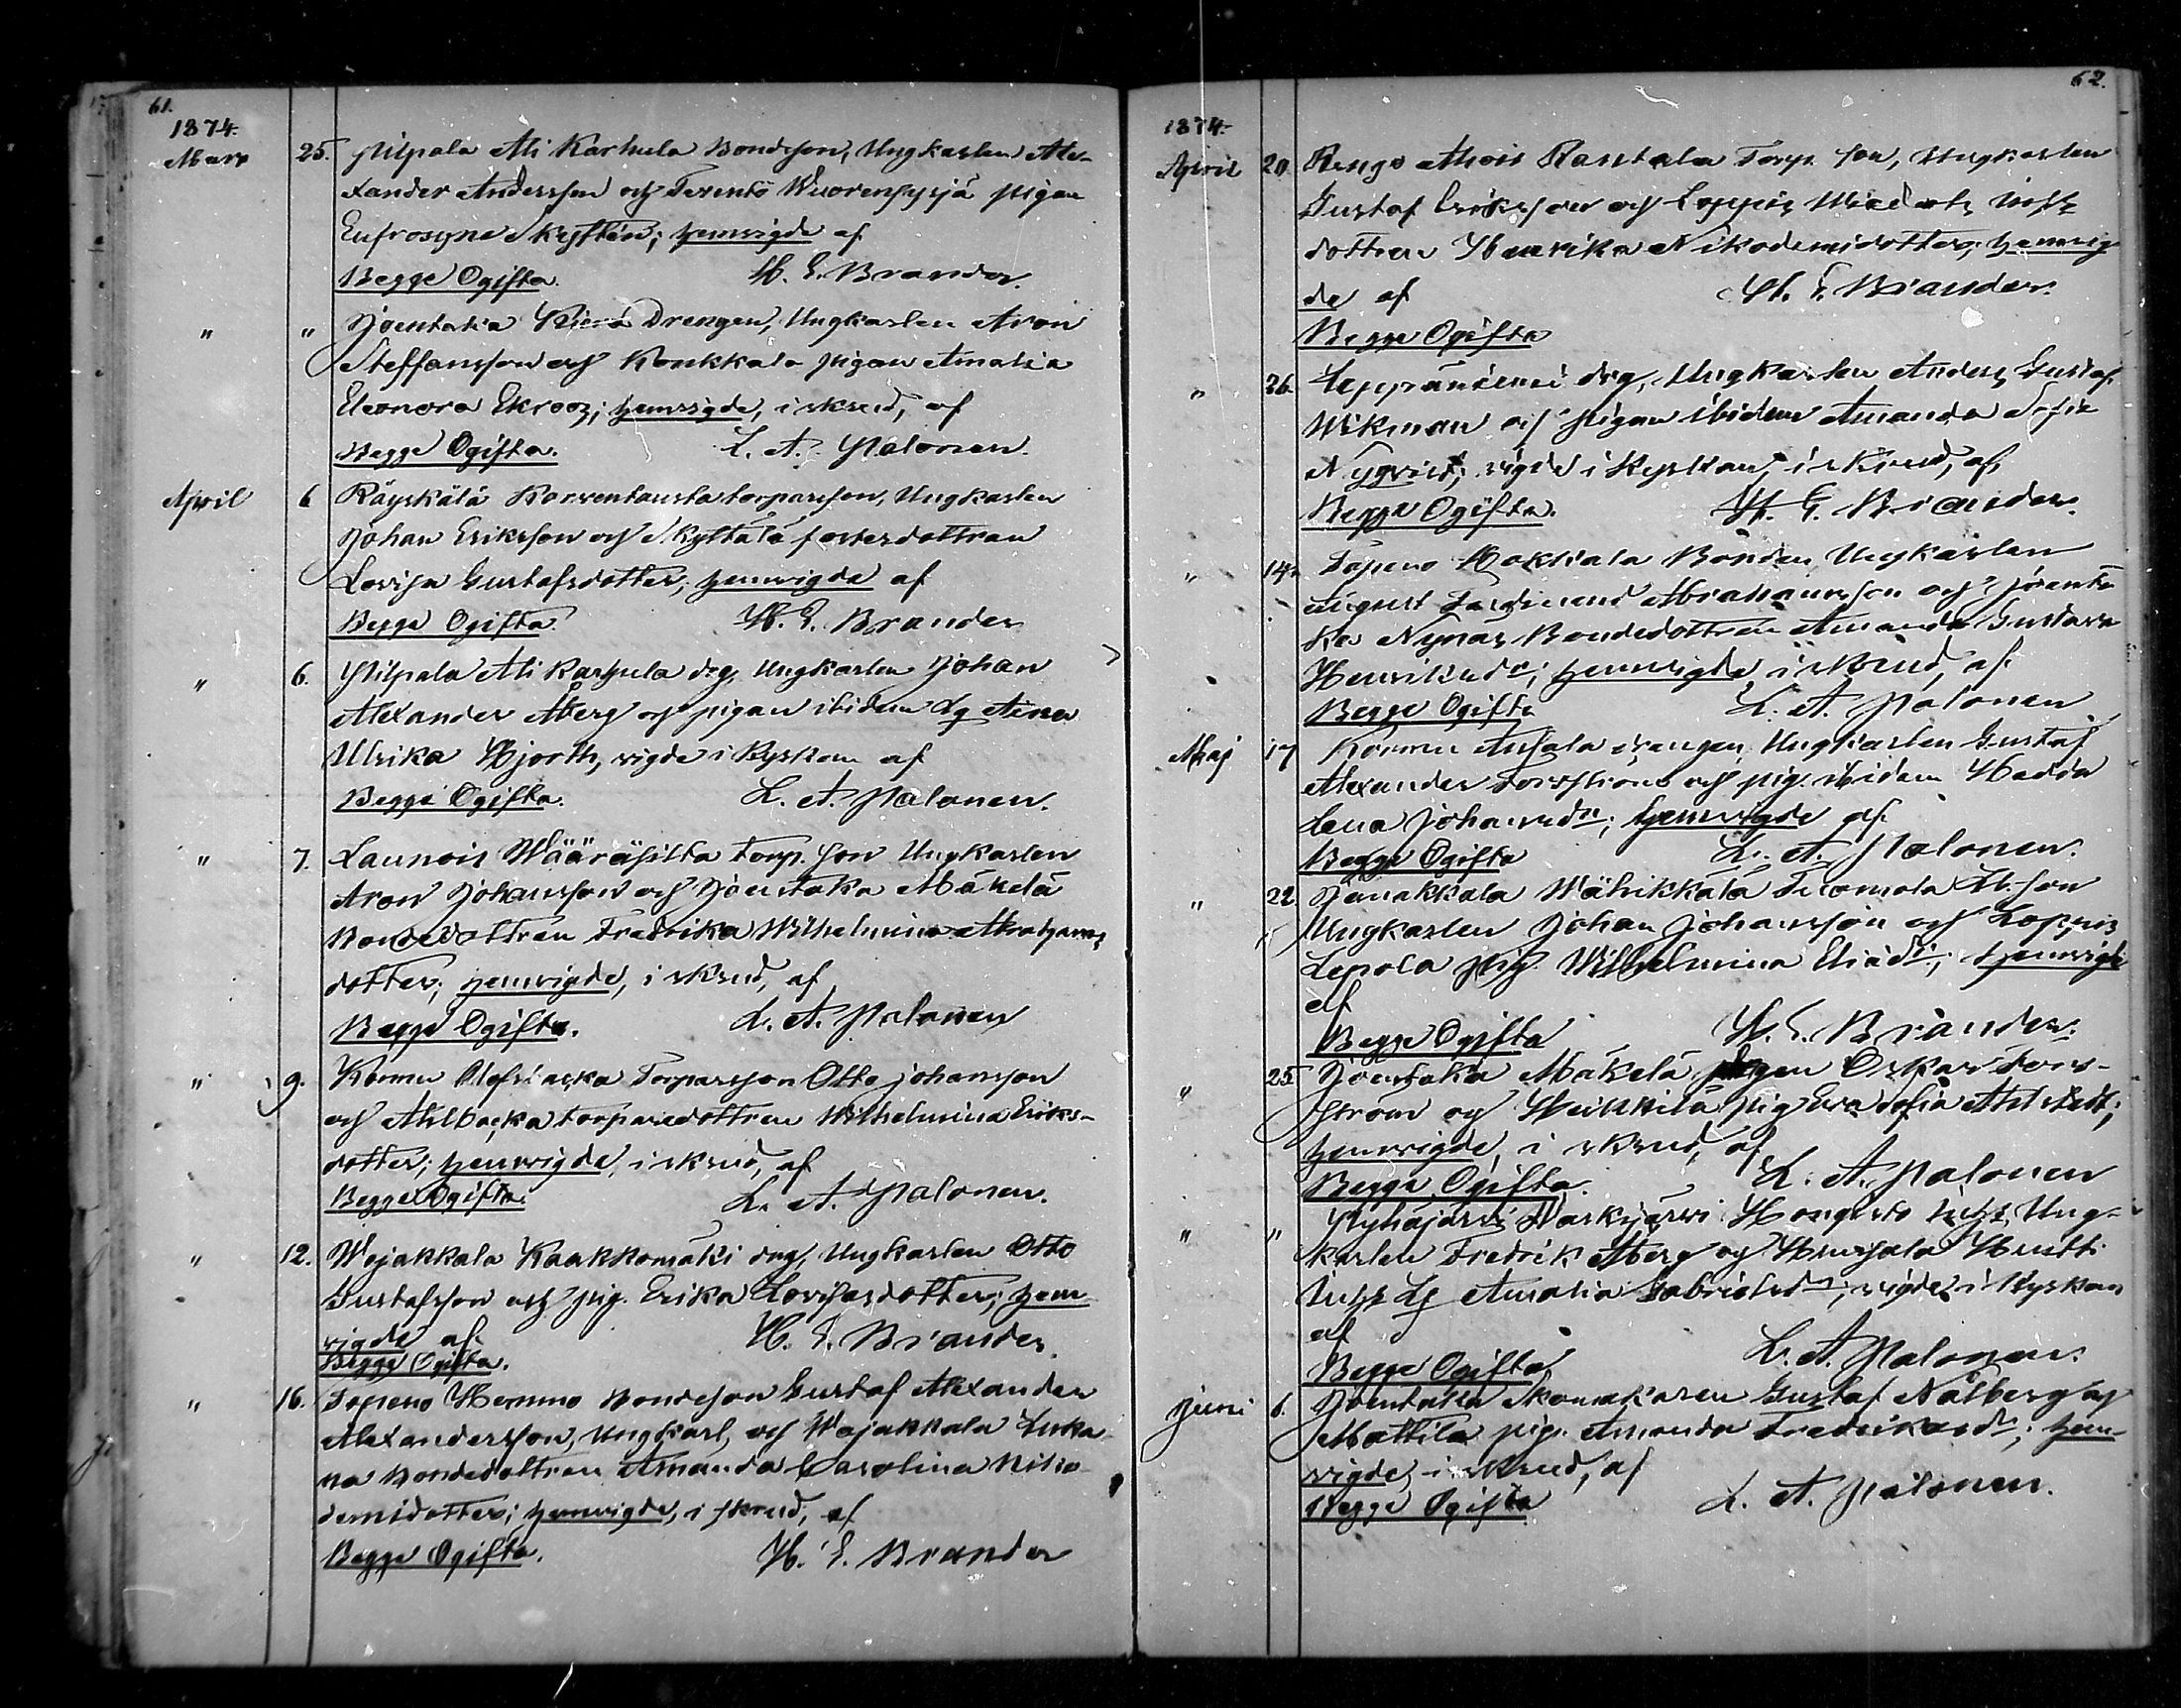 61.
1874.
Mars 25. Pilpala Ali Karhula Bondeson, Ungkarlen Ale-
xander Andersson och Terentö Kuorensyrjä pigan
Eufrosyne Skyttän; hemvigde af
Begge Ogifta. H. E. Brander.
" " Joentaka Drengen, Ungkarlen Aron
Steffansson och Konkkala pigan Amalia
Eleonora Ekroos; hemvigde, i skrud, af
Begge Ogifta. L. A. Palonen.
April 6 Räyskälä Korventausta torparson, Ungkarlen
Johan Eriksson och Skyttälä fosterdottran
Lovisa Gustafsdotter, hemvigde af
Begge Ogifta. H. E. Brander
" 6. Pilpala Ali Karhula drg, Ungkarlen Johan
Alexander Åberg och pigan ibidem Lg Aina
Ulrika Hjorth, vigde i Kyrkan af
Begge Ogifta. L. A. Palonen.
" 7. Launois Wääräsilta Torp. Son Ungkarlen
Aron Johansson och Joentaka Mäkelä
Bondedottren Fredrika Wilhelmina Abrahams
dotter; hemvigde, i skrud, af
Begge Ogifta. L. A. Palonen
" 9. Kormu Olofsbacka Torparsson Otto Johansson
och Ahlbacka torparedottren Wilhelmina Eriks-
dotter; hemvigde, i skrud, af
Begge Ogifta. L. A. Palonen.
" 12. Wojakkala Kaakkomäki drg, Ungkarlen Otto
Gustafsson och pig. Erika Lovisasdotter; hem
vigde af H. E. Brander.
Begge Ogifta.
" 16. Topeno Hemmo Bondeson Gustaf Alexander
Alexandersson, Ungkarl, och Wojakkala Luka
na Bondedottren Amanda Carolina Niko
demidotter; hemvigde, i skrud, af
Begge Ogifta. H. E. Brander
62.
1874.
April 20 Rengo Ahois Rantala Torp. Son, Ungkarlen
Gustaf Eriksson och Loppis
dottren Henrika Nikodemidotter; hemvig
de af H. E. Brander.
Begge Ogifta
" 26. Leppäniemi drg, Ungkarlen Anders Gustaf
Wikman och Pigan ibidem Amanda Sofia
Nyqvist; vigde i Kyrkan, i skrud, af
Begge Ogifta. H. E. Brander.
" 14. Topeno Bonden, Ungkarlen
August Ferdinand Abrahamsson och Joenta
ka Nynäs Bondedottren Amanda Gustava
Henriksdr; hemvigde, i skrud, af
Begge Ogifta L. A. Palonen
Maj 17 Kormu Anjala drengen, Ungkarlen Gustaf
Alexander Forsström och pig. ibidem Hedda
Lena Johansdr; hemvigde af
Begge Ogifta L. A. Palonen.
" 22 Janakkala Wähikkälä Tuomola Th. Son
Ungkarlen Johan Johansson och Loppis
Lepola pig. Wilhelmina Eliædr; hemvigde
af
Begge Ogifta H. E. Brander.
" 25 Joentaka Mäkelä drgen Oskar Fors-
ström och Heikkilä pig Eva Sofia Ahlstedt;
hemvigde, i skrud, af
Begge Ogifta. L. A. Palonen
" " Pyhäjärvi Haskijärvi Hongisto Ung-
karlen Fredrik Åberg och Hunsala Hutti
Lg Amalia Gabrielsdr; vigde i Kyrkan
af
Begge Ogifta L. A. Palonen.
Juni 6. Joentaka Skomakaren Gustaf Nålberg och
Mattila pig. Amanda Fredriksdr; hem-
vigde, i skrud, af
Begge Ogifta L. A. Palonen.